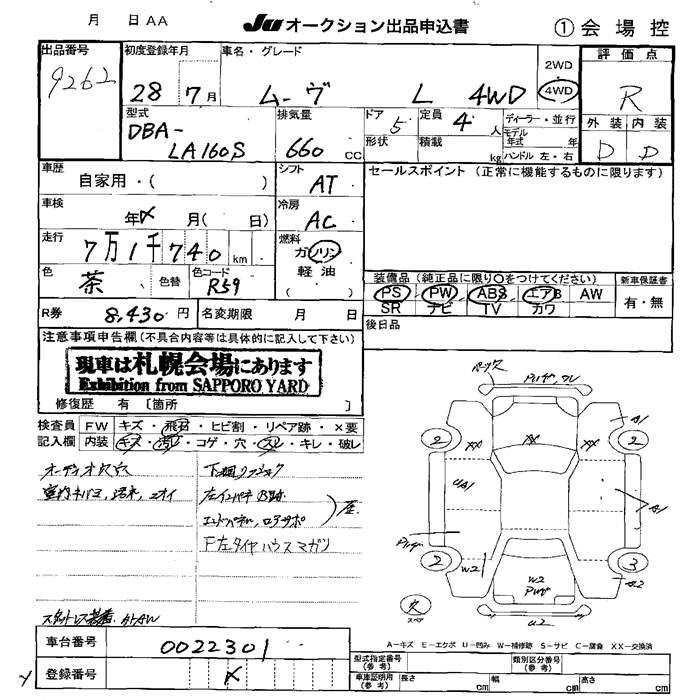 月 日 AA JU オークション出品申込書 ① 会 場 控
出品番号 9262
初度登録年月 28 7月
車名・グレード ムーヴ L 4WD
2WD
4WD
評 価 点 R
外 装 内 装
D D
型式 DBA-
LA160S
排気量 660 CC
ドア 5
定員 4 人
形状 積載 kg
ディーラー・並行
モデル
年式 年
ハンドル 左・右
車歴 自家用・( )
シフト AT
セールスポイント (正常に機能するものに限ります)
車検 年 月( 日)
冷房 AC
走行 7万1千740 km
燃料 ガソリン
軽 油
( )
色 茶 色替 色コード R59
装備品 (純正品に限り○をつけてください)
PS PW ABS エアB AW
SR ナビ TV カワ
新車保証書
有・無
R券 8,430 円 名変期限 月 日
後日品
注意事項申告欄(不具合内容等は具体的に記入して下さい)
現車は札幌会場にあります
Exhibition from SAPPORO YARD
修復歴 有 〔箇所 〕
検査員 FW キズ・飛石・ヒビ割・リペア跡・×要
記入欄 内装 キズ・汚レ・コゲ・穴・スレ・キレ・破レ
F左タイヤハウスマガリ
A1
2 XX XX XX 2
UA1
A1
2 W2 W2 3
A2
スペア
U2
A−キズ E−エクボ U−凹み W−補修跡 S−サビ C−腐食 XX−交換済
車台番号 0022301
登録番号
型式指定番号
(参考)
類別区分番号
(参考)
車庫証明用
(参考)
長さ cm 幅 cm 高さ cm